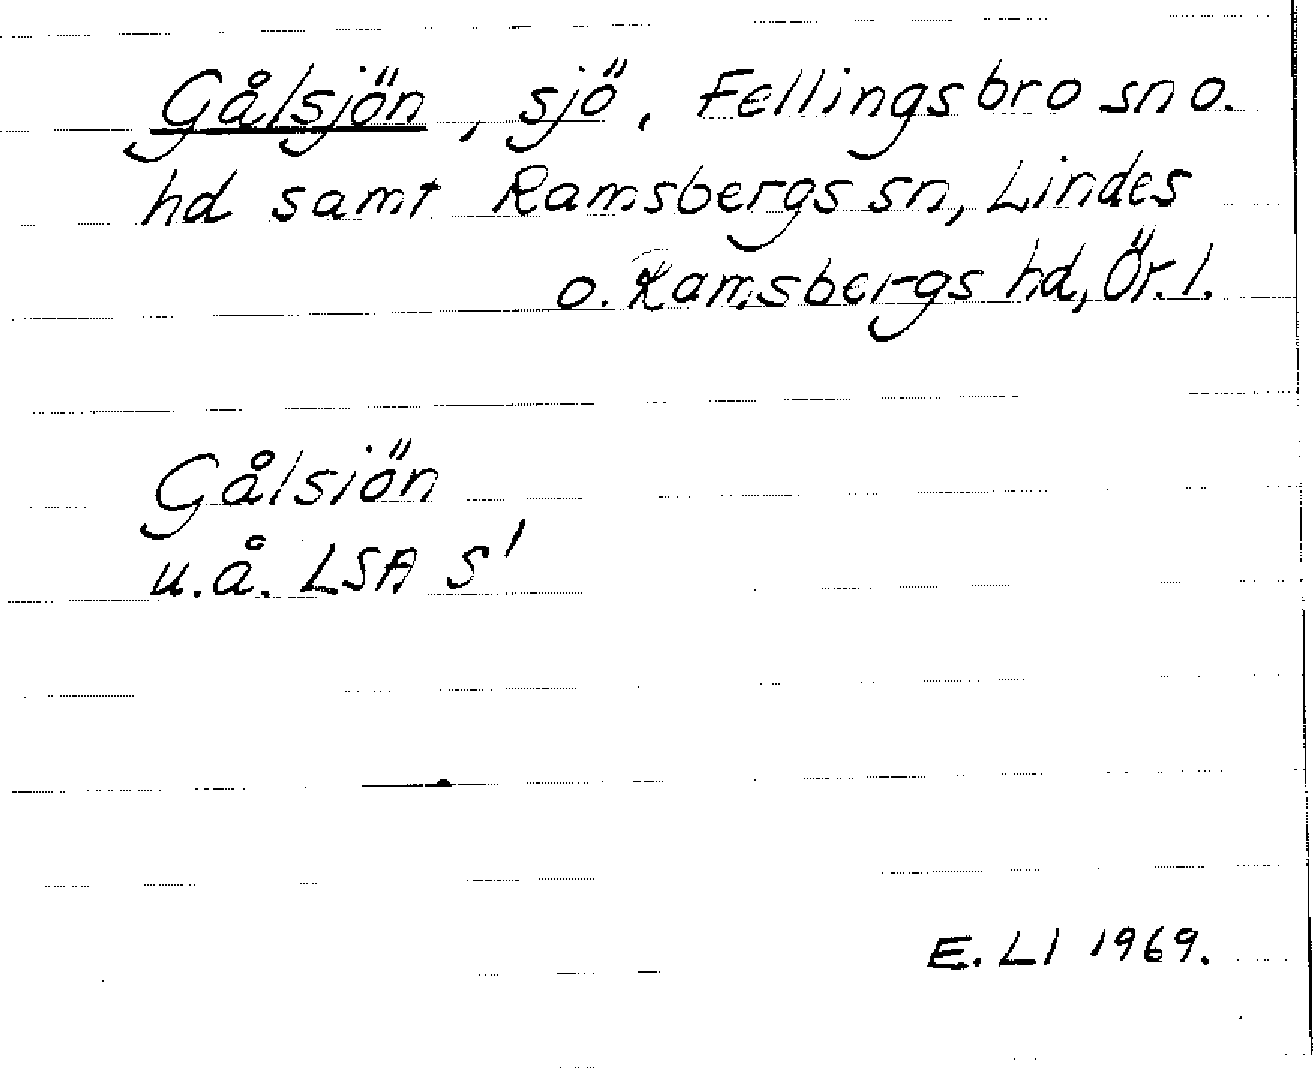 Gålsjön, sjö, Fellingsbro sn o.
hd samt Ramsbergs sn, Lindes
o. Ramsbergs hd, Ör. l.
Gålsiön
u.å. LSA S'
E. LI 1969.